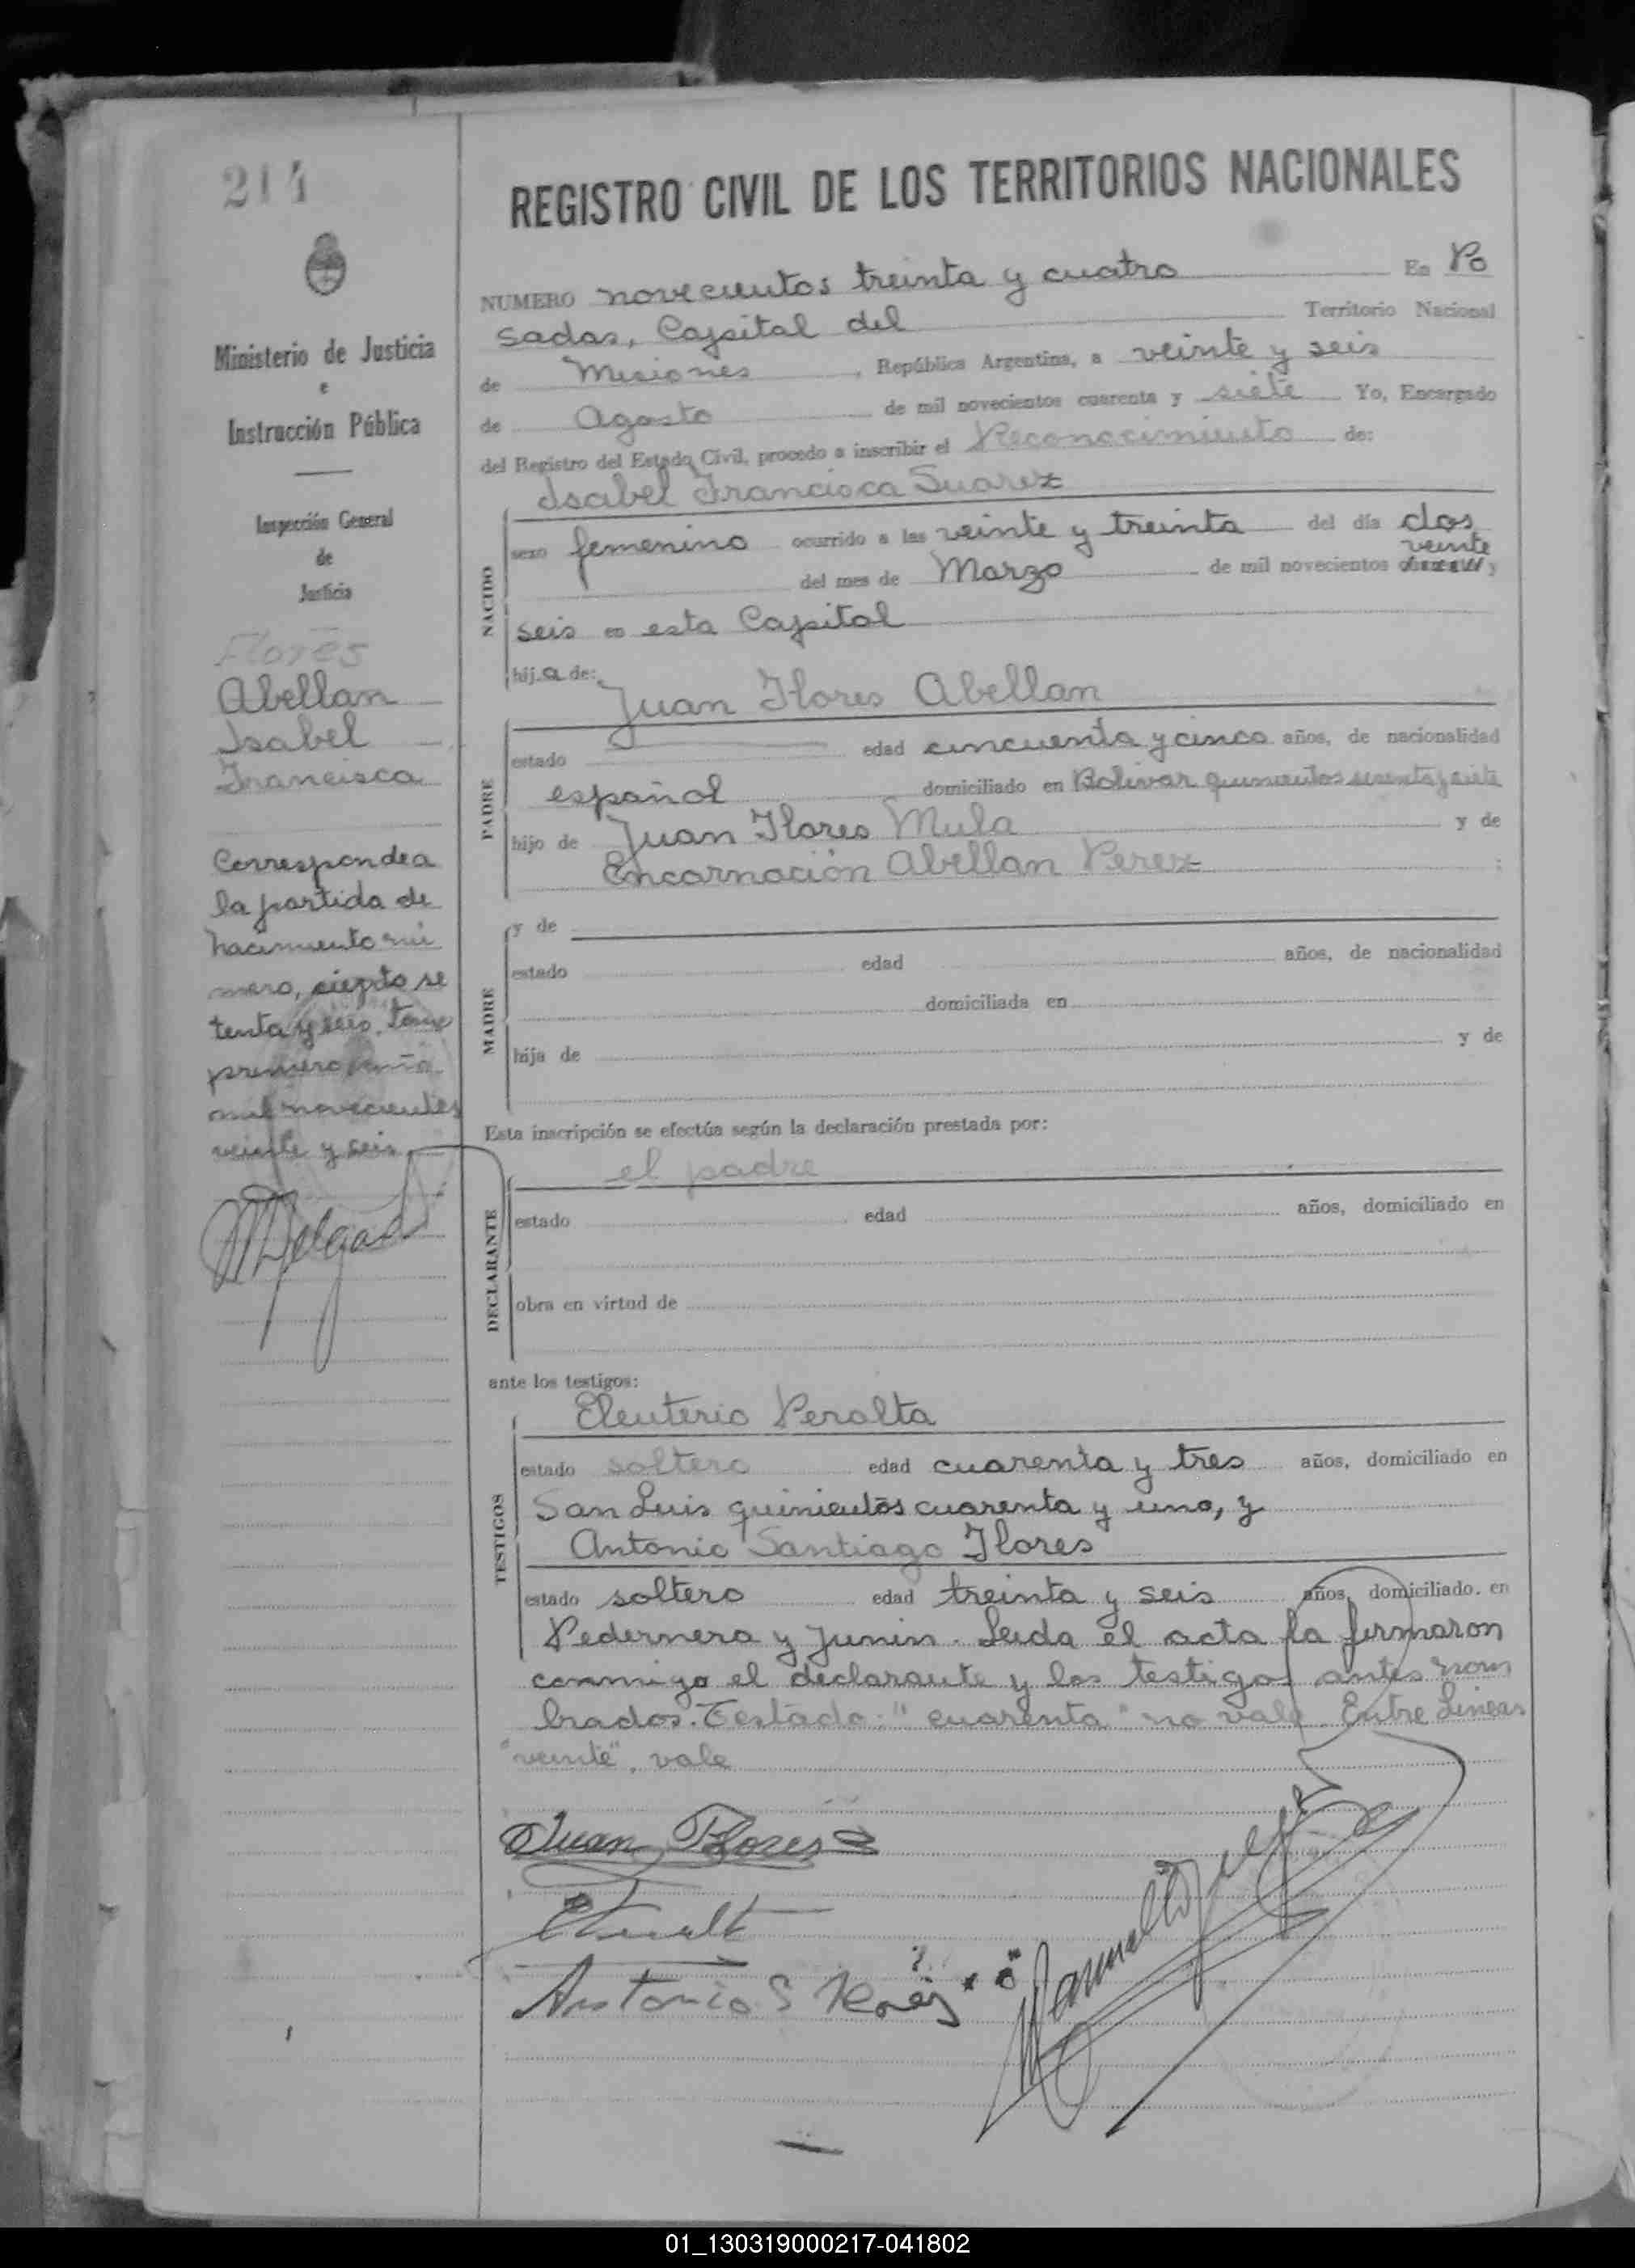 214
Ministerio de Justicia
e
Instrucción Pública
Inspección General
de
Justicia
Flores
Abellan
Isabel
Francisca
Corresponde a
la partida de
nacimiento nú
mero, ciento se
tenta y seis, tomo
primero año
mil novecientos
veinte y seis
MDelgado
REGISTRO CIVIL DE LOS TERRITORIOS NACIONALES
NUMERO novecientos treinta y cuatro En Po
sadas, Capital del Territorio Nacional
de Misiones, República Argentina, a veinte y seis
de Agosto de mil novecientos cuarenta y siete Yo, Encargado
del Registro del Estado Civil, procedo a inscribir el Reconocimiento de:
Isabel Francisca Suarez
NACIDO
sexo femenino ocurrido a las veinte y treinta del día dos
veinte
del mes de Marzo de mil novecientos cuarenta y
seis en esta Capital
hija de:
Juan Flores Abellan
PADRE
estado edad cincuenta y cinco años, de nacionalidad
español domiciliado en Bolivar quinientos sesenta y siete
hijo de Juan Flores Mula y de
Encarnación Abellan Perez ;
MADRE
y de
estado edad años, de nacionalidad
domiciliada en
hija de y de
Esta inscripción se efectúa según la declaración prestada por:
el padre
DECLARANTE
estado edad años, domiciliado en
obra en virtud de
ante los testigos:
Eleuterio Peralta
TESTIGOS
estado soltero edad cuarenta y tres años, domiciliado en
San Luis quinientos cuarenta y uno, y
Antonio Santiago Flores
estado soltero edad treinta y seis años, domiciliado en
Pedernera y Junin. Leida el acta la firmaron
conmigo el declarante y los testigos antes nom
brados. Testado: "cuarenta" no vale. Entre Lineas
"veinte", vale
Juan Flores
EPeralt
Antonio S Flores
01_130319000217-041802